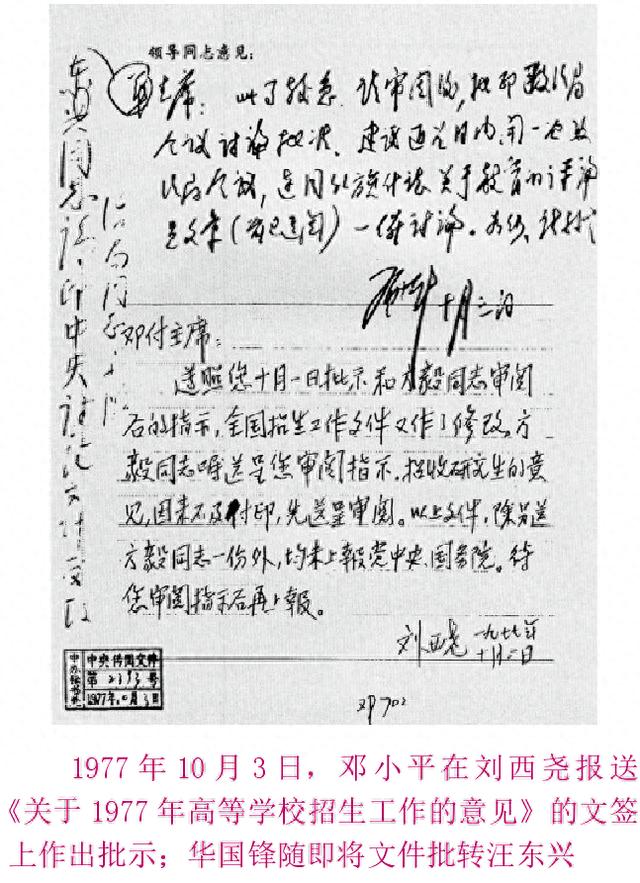 领导同志意见:
华主席: 此事较急. 请审阅后, 批印政治局
会议讨论批准. 建议近几日内开一次政
治局会议, 连同红旗杂志关于教育的评论
员文章(前已送阅)一併讨论. 如何, 请批示
邓小平 十月三日
东兴同志
邓付主席:
遵照您十月一日批示和方毅同志审阅
后的指示,全国招生工作文件又作了修改,方
毅同志嘱送呈您审阅指示。招收研究生的意
见,因来不及付印,先送呈审阅。以上文件,除另送
方毅同志一份外,均未上报党中央、国务院。待
您审阅指示后再上报。
刘西尧 一九七七年
十月二日
中央传阅文件
第 2393 号
1977年10月3日
邓702
1977 年 10 月 3 日,邓小平在刘西尧报送
《关于 1977 年高等学校招生工作的意见》的文签
上作出批示；华国锋随即将文件批转汪东兴